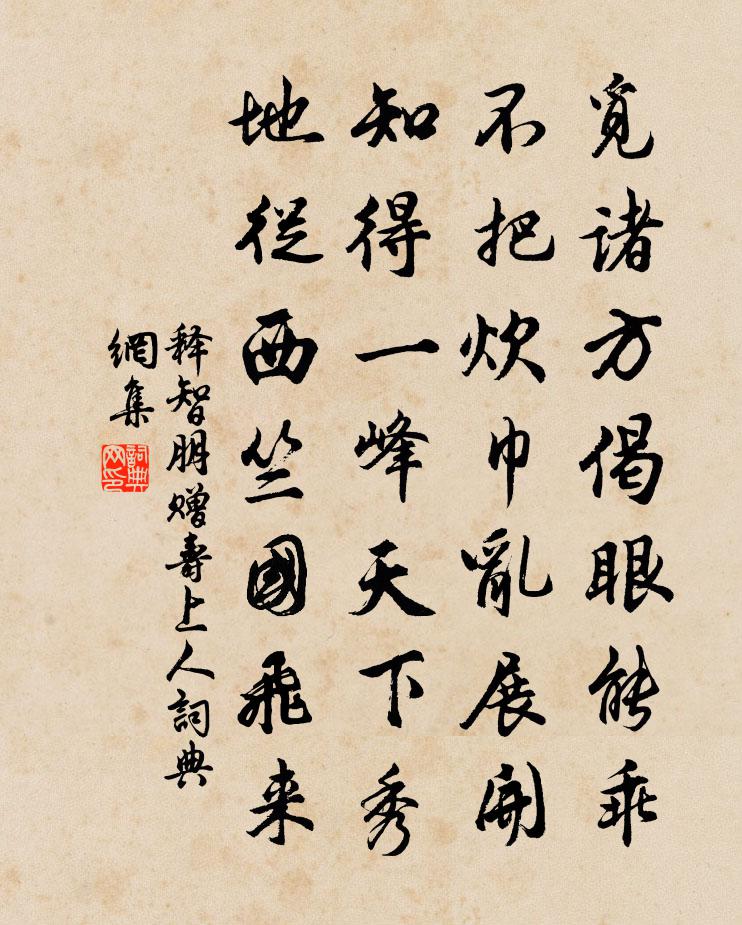 覓諸方偈眼能乖
不把炊巾亂展開
知得一峰天下秀
地從西竺國飛来
释智朋赠壽上人詞典
網集
詞典
网印